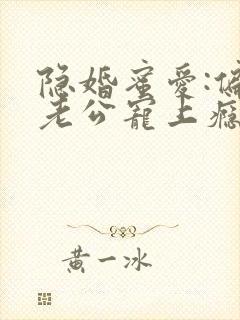 隐婚蜜爱:偏
老公宠上瘾
黄一冰